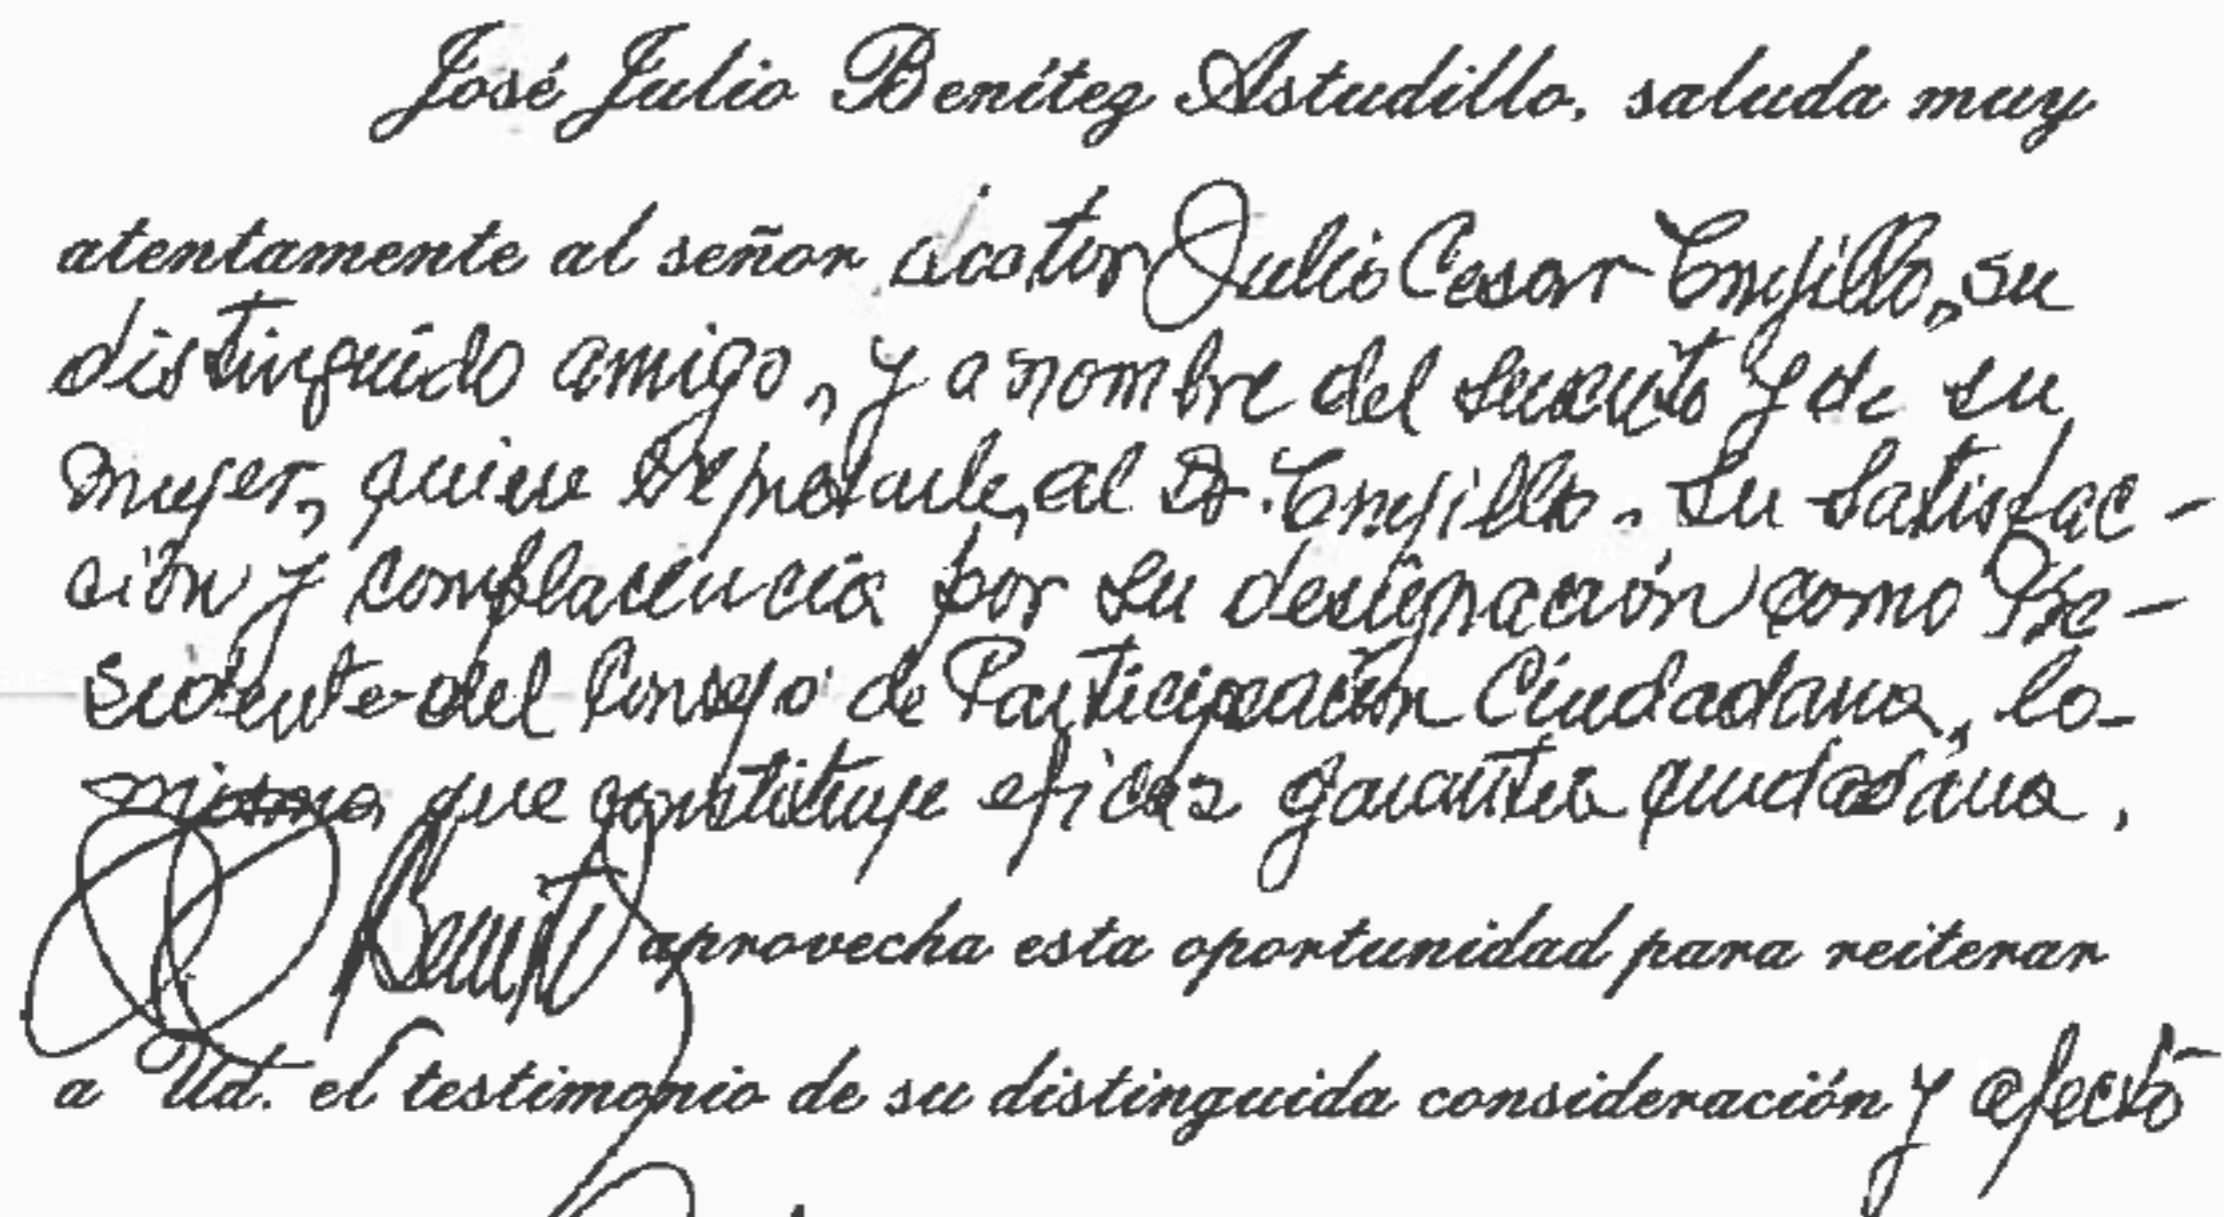 José Julio Benítez Astudillo, saluda muy
atentamente al señor doctor Julio Cesar Trujillo, su
distinguido amigo, y a nombre del suscrito y de su
mujer, quiere expresarle, al Dr. Trujillo, su satisfac-
ción y complacencia por su designación como Pre-
sidente del Consejo de Participación Ciudadana, lo
mismo que constituye eficaz garantía ciudadana.
Benítez aprovecha esta oportunidad para reiterar
a Ud. el testimonio de su distinguida consideración y afecto